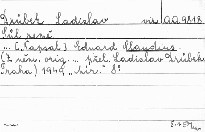 Drůbek Ladislav viz AA 9818.
Sůl země
... [Napsal] Eduard Claudius.
(Z něm. orig. ... přel. Ladislav Drůbek.
Praha) 1949, "Mír." 8°